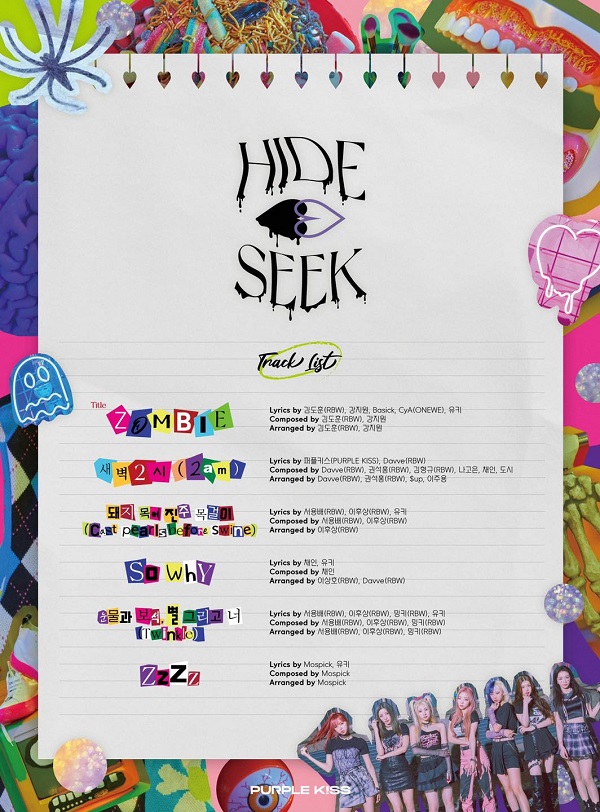 HIDE
SEEK
Track List
Title
ZOMBIE
Lyrics by 김도훈(RBW), 강지원, Basick, CyA(ONEWE), 유키
Composed by 김도훈(RBW), 강지원
Arranged by 김도훈(RBW), 강지원
새벽 2시 (2am)
Lyrics by 퍼플키스(PURPLE KISS), Davve(RBW)
Composed by Davve(RBW), 권석홍(RBW), 김형규(RBW), 나고은, 채인, 도시
Arranged by Davve(RBW), 권석홍(RBW), $up, 이주용
돼지 목에 진주 목걸이
(Cast pearls before swine)
Lyrics by 서용배(RBW), 이후상(RBW), 유키
Composed by 서용배(RBW), 이후상(RBW)
Arranged by 이후상(RBW)
So whY
Lyrics by 채인, 유키
Composed by 채인
Arranged by 이상호(RBW), Davve(RBW)
눈물과 보석, 별 그리고 너
(Twinkle)
Lyrics by 서용배(RBW), 이후상(RBW), 밍키(RBW), 유키
Composed by 서용배(RBW), 이후상(RBW), 밍키(RBW)
Arranged by 서용배(RBW), 이후상(RBW), 밍키(RBW)
ZzZz
Lyrics by Mospick, 유키
Composed by Mospick
Arranged by Mospick
PURPLE K!SS